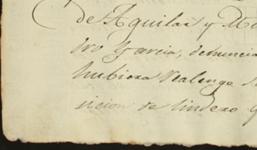 de Aguilar y M
dro Garcia, denuncia
hubiera Realengo
sicion de lindero y